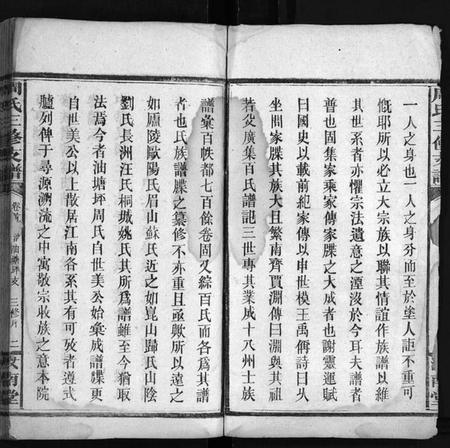 一人之身也一人之身分而至於塗人詎不重可
慨耶所以必立大宗族以聯其情誼作族譜以維
其世系者亦懼宗法遺意之湮沒於今耳夫譜者
普也固集家乘家傳家牒之大成者也謝靈運賦
曰國史以載前紀家傳以申世模王禹偁詩曰
坐間家牒其族大且繁南齊賈淵傳曰淵與其祖
若父廣集百氏譜記三世專其業成十八州士族
譜彙百帙都七百餘卷固及綜百氏而各爲其譜
者也氏族譜牒之纂修不亦重且亟歟所以遠之
如廬陵歐陽氏眉山蘇氏近之如崑山歸氏山陰
劉氏長洲汪氏桐城姚氏其所爲譜雖至今猶取
法焉今者油塘坪周氏自世美公始彙成譜牒更
自世美公以上散居江南各系其有可攷者遵式
臚列俾于尋源溯流之中寓敬宗收族之意本院
周氏三修支譜
卷首
三修
汝南堂